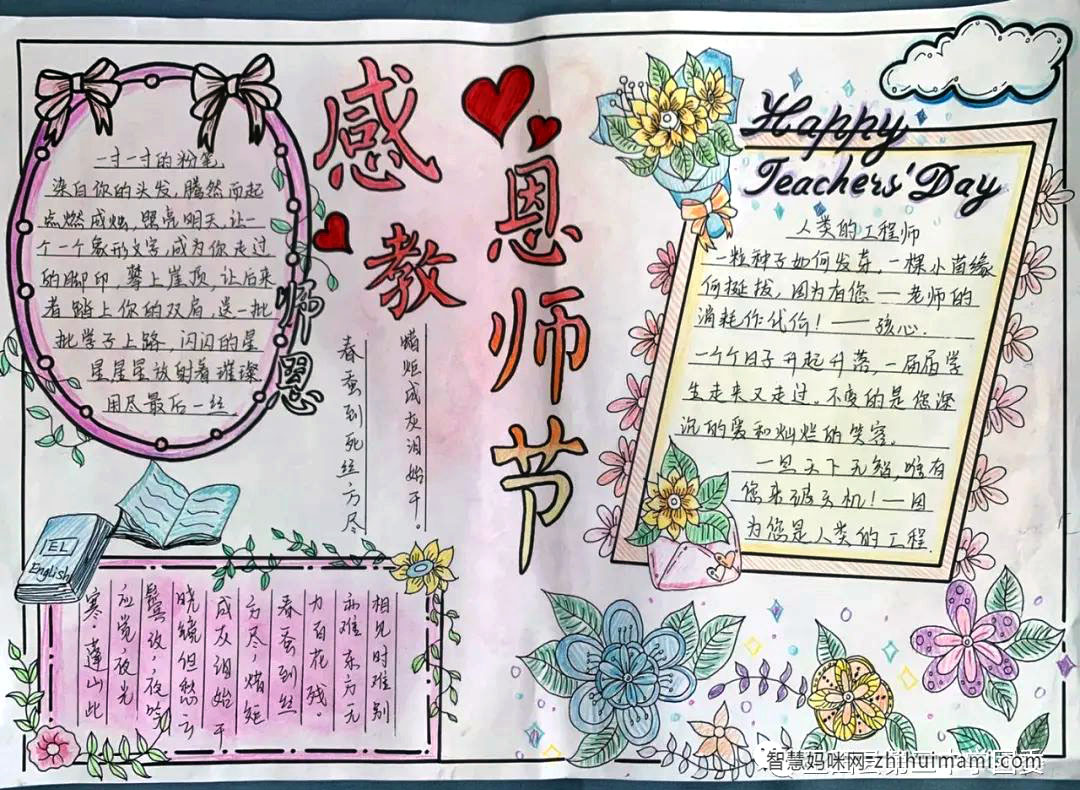 感恩
教师节
一寸一寸的粉笔
染白你的头发,腾然而起
点燃成烛,照亮明天,让一
个一个象形文字,成为你走过
的脚印,攀上崖顶,让后来
者踏上你的双肩,送一批
批学子上路,闪闪的星
星星星放射着璀璨
用尽最后一丝
师恩
春蚕到死丝方尽
蜡炬成灰泪始干。
Happy
Teachers' Day
人类的工程师
一粒种子如何发芽,一棵小苗缘
何挺拔,因为有您——老师的
消耗作代价!——孩心.
一个个日子升起升落,一届届学
生走来又走过。不变的是您深
沉的爱和灿烂的笑容。
一旦天下无智,唯有
您来破天机!——因
为您是人类的工程.
EL
English
相见时难别
亦难东方无
力百花残。
春蚕到丝
方尽,烛炬
成灰泪始干
晓镜但愁云
鬓改,夜吟
应觉,夜光
寒蓬山此
智慧妈咪网-zhihuimami.com